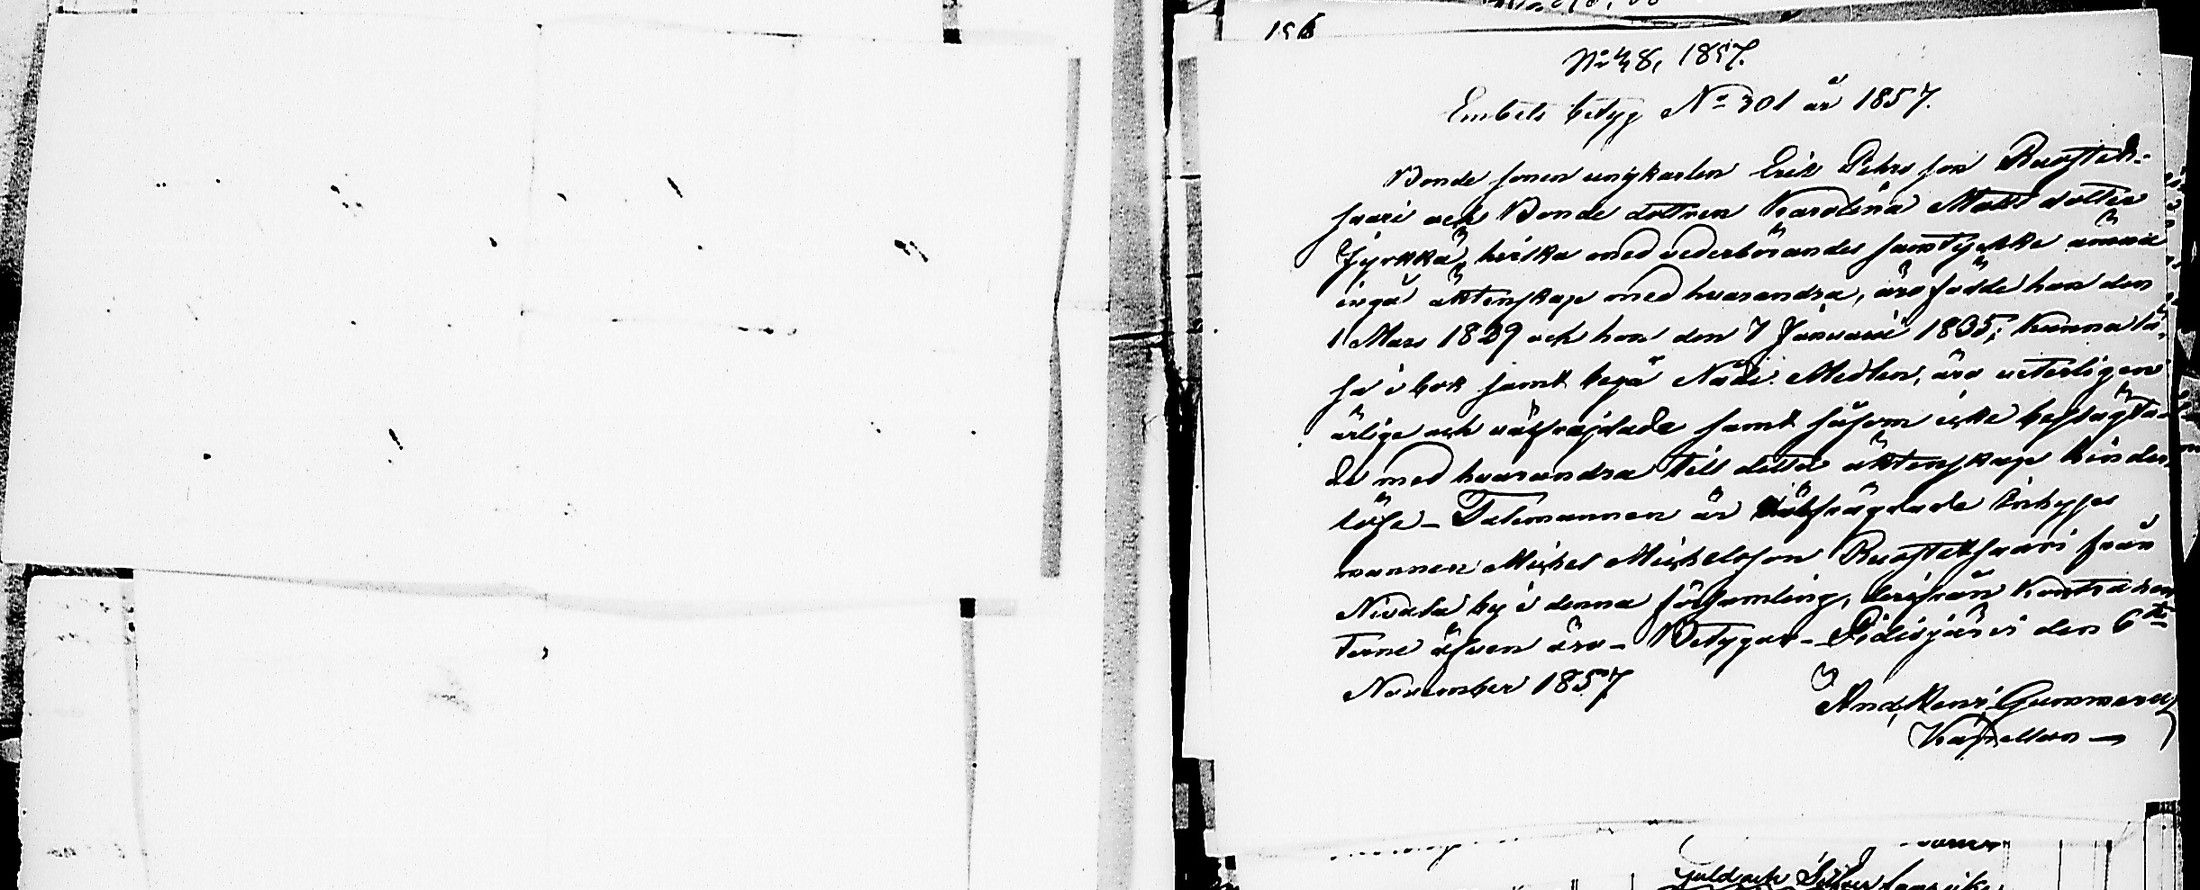 196
No 48, 1857.
Embets betyg No 301 år 1857.
Bonde sonen ungkarlen Erik Pehrsson Ruostet-
saari och Bonde dottren Karolina Matts dotter
Jyrkkä, hvilka med vederbörandes samtycke ämna
ingå äktenskap med hvarandra, äro födde han den
1 Mars 1829 och hon den 7 Januarii 1835; kunna lä-
sa i bok samt begå Nåde Medlen, äro veterligen
ärlige och välfrejdade samt såsom icke beslägta-
de med hvarandra till detta äktenskap hinder-
löse - Talemannen är välfrägdade Inhyses
mannen Michel Michelsson Ruostetsaari från
Nivala by i denna församling, derifrån Kontrahen
terne äfven äro - Betygar - Pidisjärvi den 6te
November 1857
And. Henr. Gummerus
Kapellan
Guld och Silfver